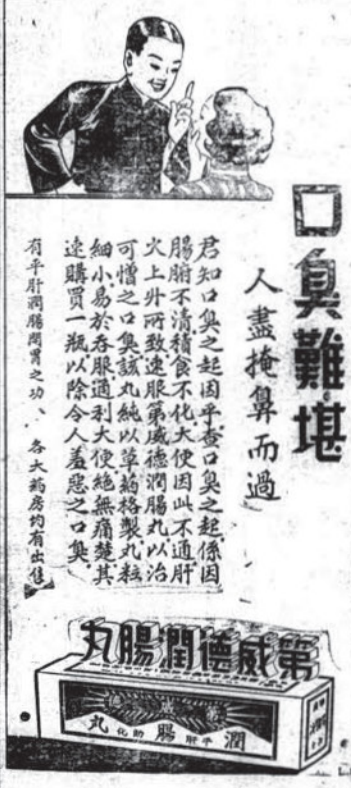 口臭難堪
人盡掩鼻而過
君知口臭之起因乎查口臭之起係因
腸腑不清積食不化大便因此不通肝
火上升所致速服第威德潤腸丸以治
可憎之口臭該丸純以草葯格製丸粒
細小易於吞服通利大便絕無痛楚其
速購買一瓶以除令人羞惡之口臭
有平肝潤腸開胃之功、各大葯房均有出售
第威德潤腸丸
潤腸丸
平肝
助化